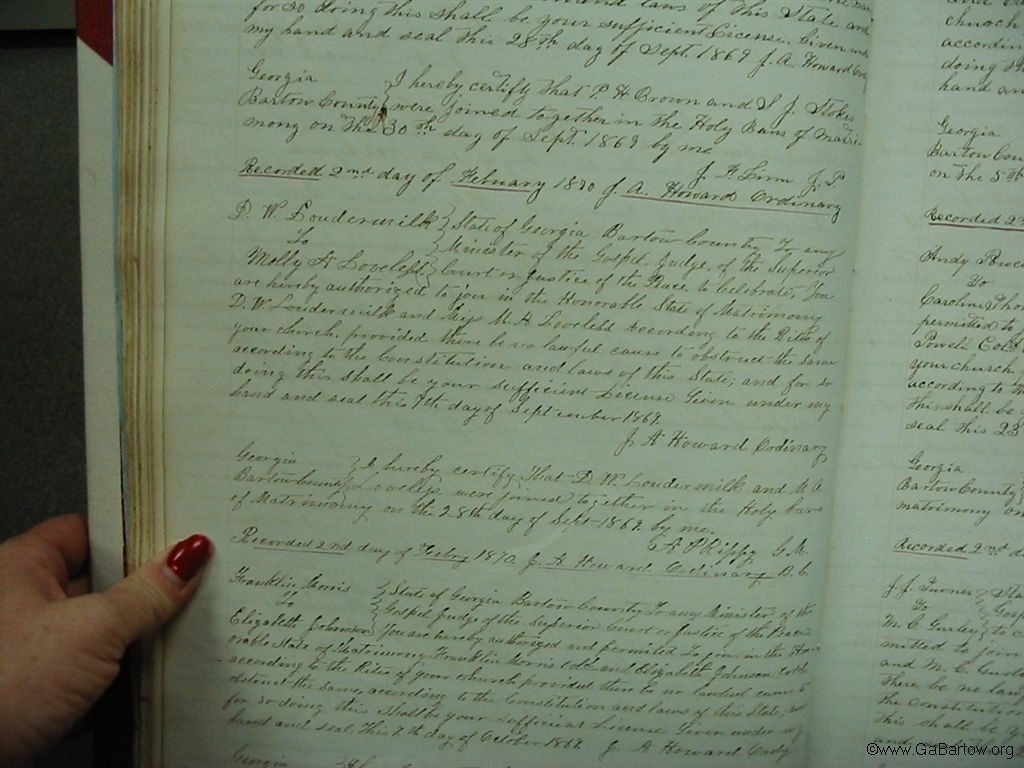 for so doing this shall be your sufficient License. Given under
my hand and seal this 28th day of Sept. 1869 J. A. Howard Ord
Georgia } I hereby certify that P H Brown and S J Stokes
Bartow County } were joined together in the Holy Bans of Matri
mony on the 30th day of Sept. 1869 by me
J. P.
Recorded 2nd day of February 1870 J. A. Howard Ordinary
D. W. Loudermilk } State of Georgia Bartow County To any
To } Minister of the Gospel, Judge, of the Superior
Melly A Loveless } Court or Justice of the Peace to celebrate, You
are hereby authorized to join in the Honorable State of Matrimony
D. W. Loudermilk and Miss M. A Loveless According to the Rites of
your church, provided there be no lawful cause to obstruct the same
according to the Constitution and laws of this State; and for so
doing this shall be your sufficient License Given under my
hand and seal this 7th day of September 1869.
J. A Howard Ordinary
Georgia } I hereby certify that D. W. Loudermilk and M. A
Bartow County } Loveless were joined together in the Holy bans
of Matrimony on the 28th day of Sept 1869 by me,
G. M.
Recorded 2nd day of Febry 1870. J. A Howard Ordinary B. C.
Franklin Morris } State of Georgia Bartow County To any Minister of the
To } Gospel Judge of the Superior Court or Justice of the Peace
Elizabeth Johnson } You are hereby authorized and permitted To join in the Hon
orable State of Matrimony Franklin Morris Cold and Elizabeth Johnson Cold
according to the Rites of your church, provided there be no lawful cause to
obstruct the same, according to the Constitution and laws of this State, and
for so doing this shall be your sufficient License Given under my
hand and seal This 7th day of October 1869. J. A Howard Ordy
Georgia
church
according
doing this
hand and
Georgia
Bartow Coun
on the 5th
Recorded 2nd
Andy
To
Caroline
permitted to
Powell Cold
your church
according to th
this shall be
seal this 23
Georgia
Bartow County
matrimony on
Recorded 2nd d
J. J. Turner } Sta
To } Gosp
M. C. Gurley } to c
mitted to join
and M. C. Gurl
there be no law
the Constitution
this shall be y
©www.GaBartow.org